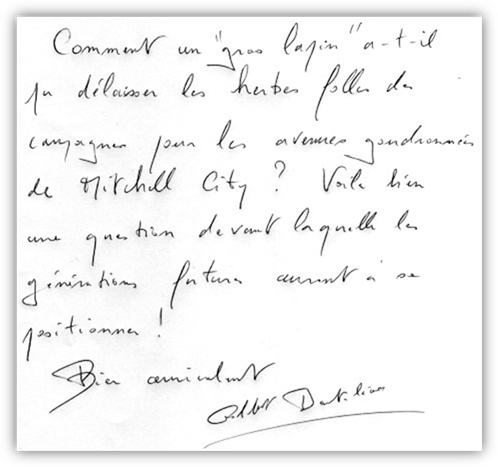 Comment un "gros lapin" a-t-il
pu délaisser les herbes folles des
campagnes pour les avenues goudronnées
de Mitchell City ? Voilà bien
une question devant laquelle les
générations futures auront à se
positionner !
Bien amicalement